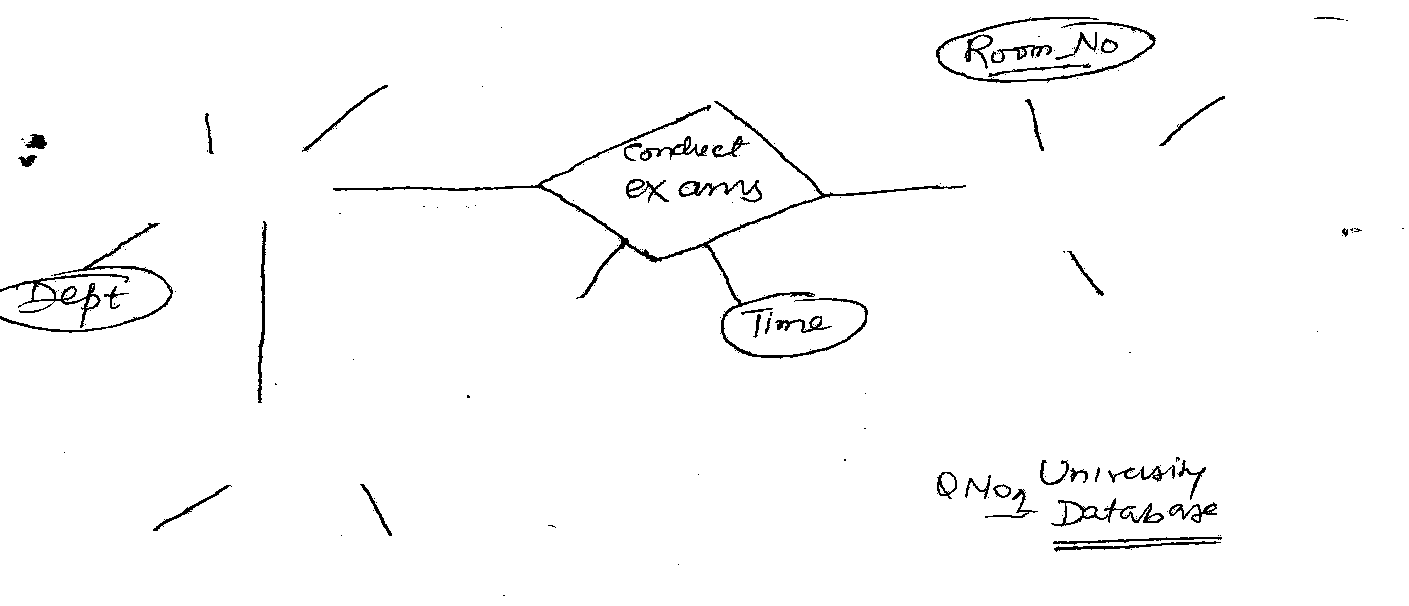 Room_No
Conduct
exams
Dept
Time
QNo2 University
Database